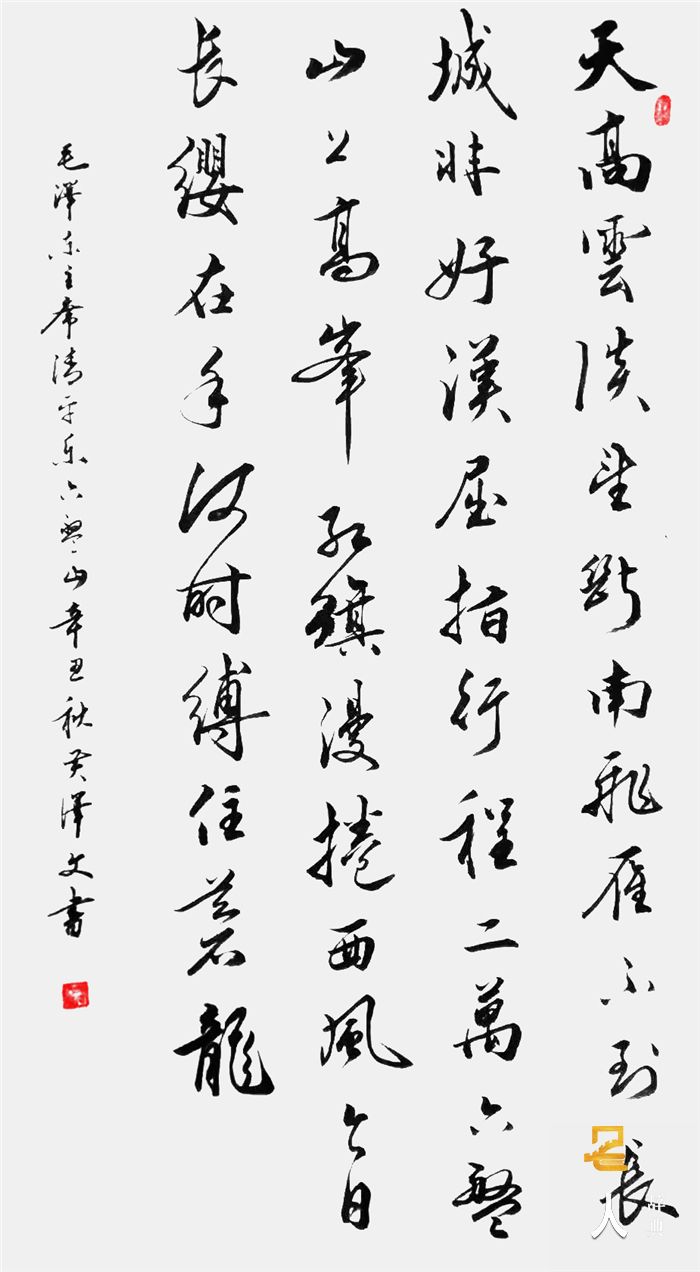 天高雲淡望斷南飛雁不到長
城非好漢屈指行程二萬六盤
山上高峯紅旗漫捲西風今日
長纓在手何時縛住蒼龍
毛澤东主席清平乐六盤山辛丑秋澤文書
人